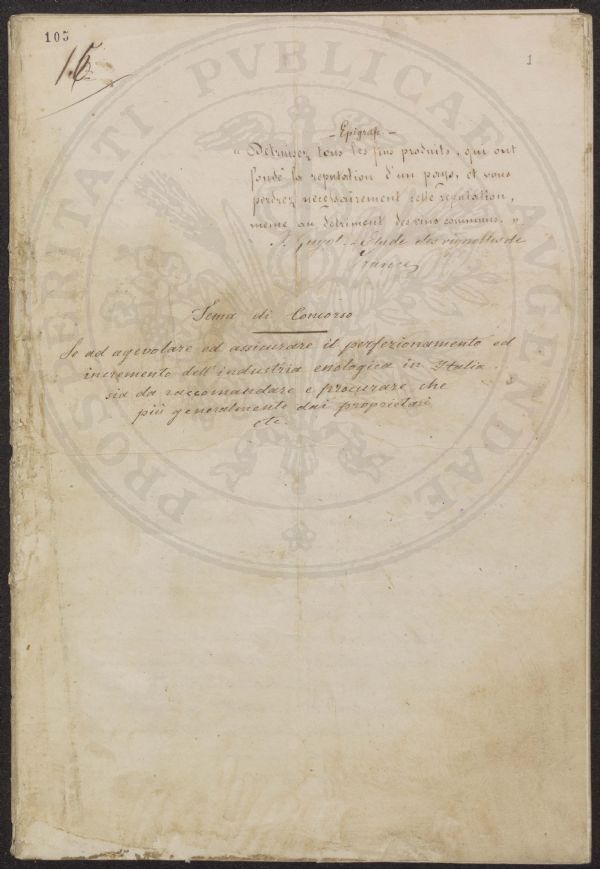 105
1
15
- Epigrafe -
« Détruisez tous les fins produits, qui ont
fondé la reputation d'un pays, et vous
perdrez necessairement cette reputation,
meme au detriment des vins communs. »
J. Guyot - Etude des vignobles de
France
Tema di Concorso
Se ad agevolare ed assicurare il perfezionamento ed
incremento dell'industria enologica in Italia
sia da raccomandare e procurare che
più generalmente dai proprietari
etc.
PROSPERITATI PVBLICAE AVGENDAE